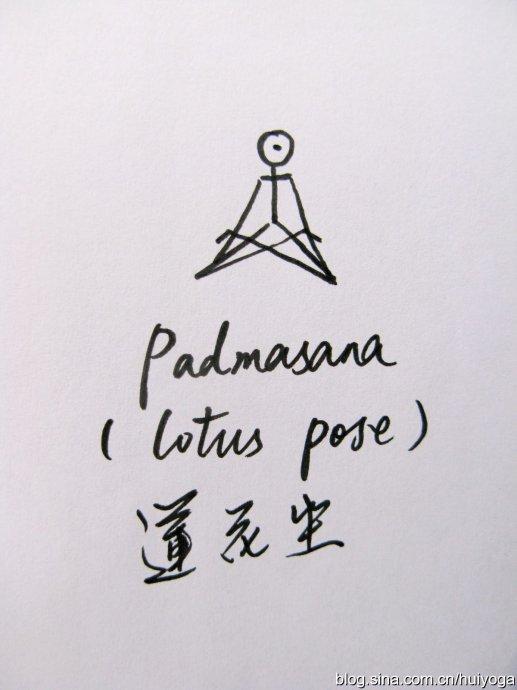 Padmasana
(lotus pose)
蓮花坐
blog.sina.com.cn/huiyoga